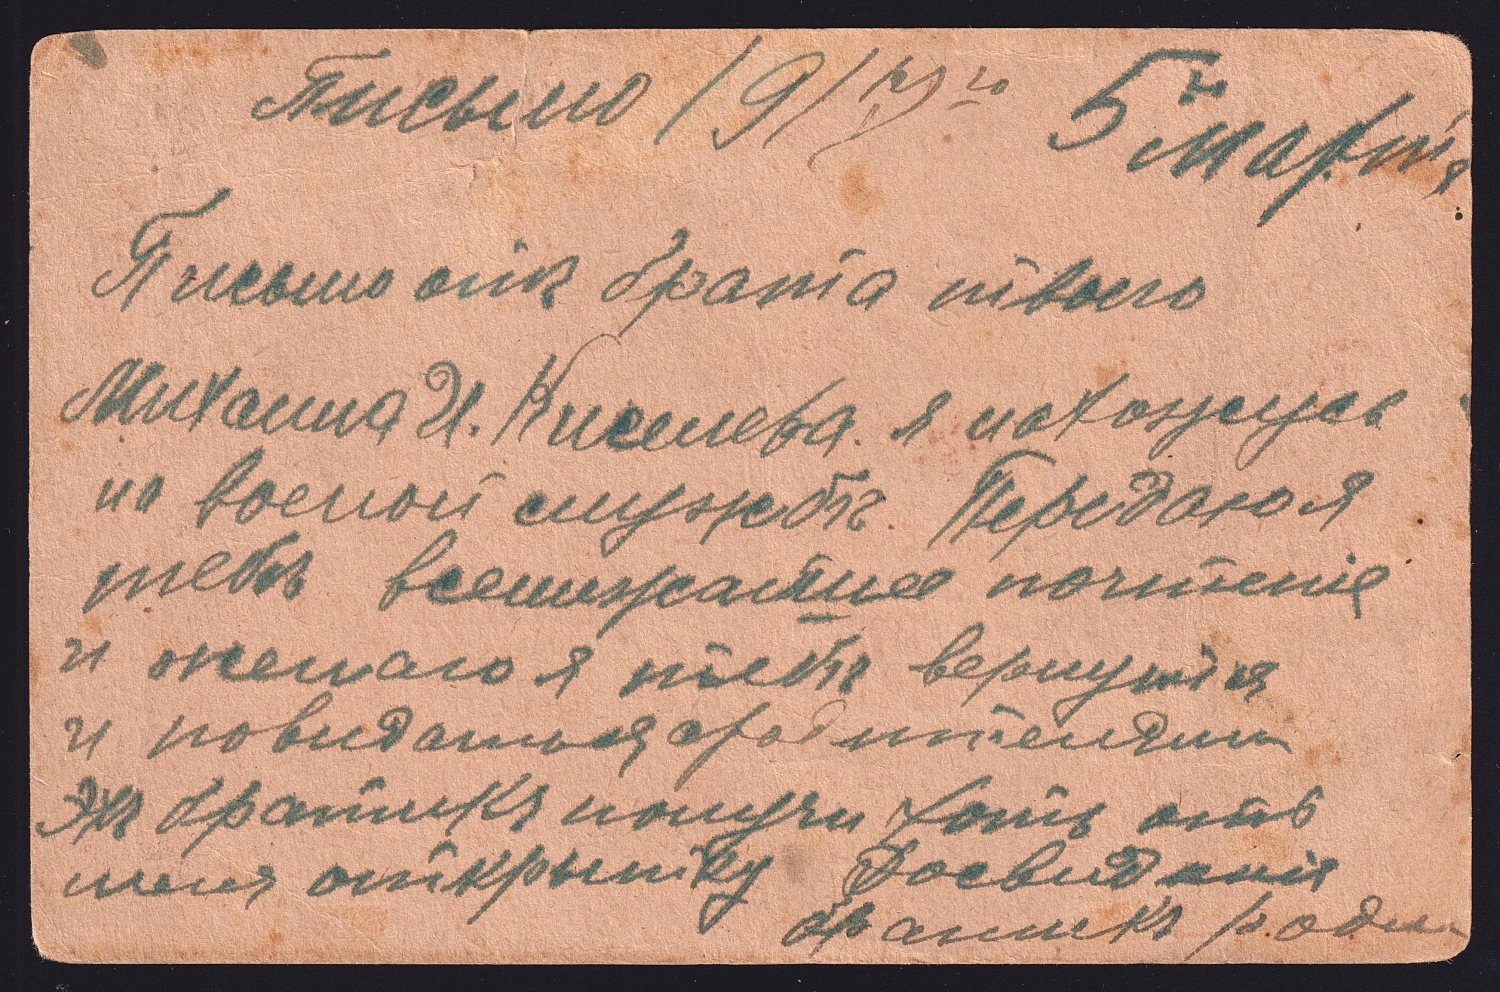 Письмо 19 го 5го Марта
Письмо отъ брата твоего
Михаила И. Киселева. я нахожусь
на военой службѣ. Передаю я
тебѣ всенижайшее почтеніе
и желаю я тебѣ вернутся
и повидаться с родителями
братикъ получи хоть отъ
меня открытку Досвиданія
братикъ